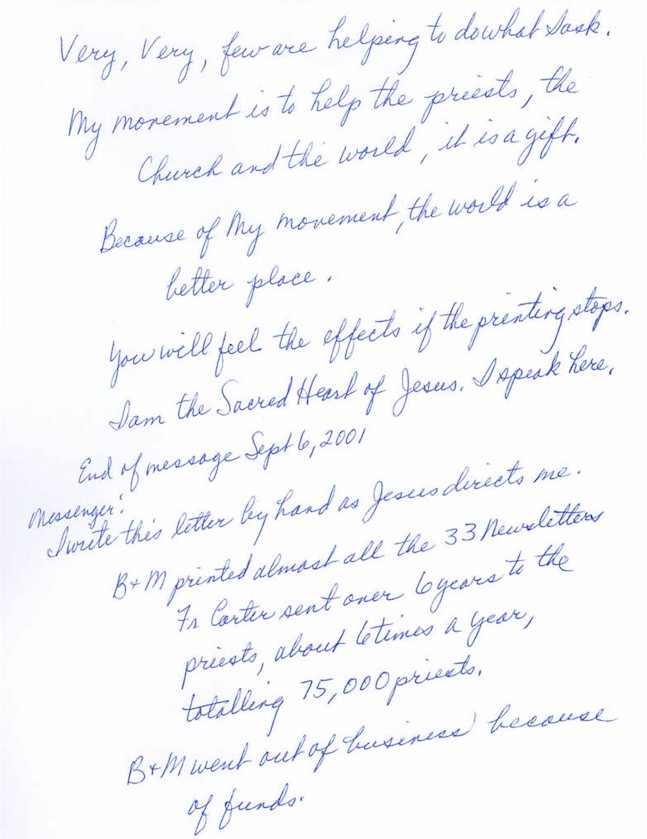 Very, Very, few are helping to do what I ask.
My movement is to help the priests, the
Church and the world, it is a gift.
Because of My movement, the world is a
better place.
You will feel the effects if the printing stops.
I am the Sacred Heart of Jesus. I speak here.
End of message Sept 6, 2001
Messenger:
I write this letter by hand as Jesus directs me.
B+M printed almost all the 33 Newsletters
Fr Carter sent over 6 years to the
priests, about 6 times a year,
totalling 75,000 priests.
B+M went out of business because
of funds.